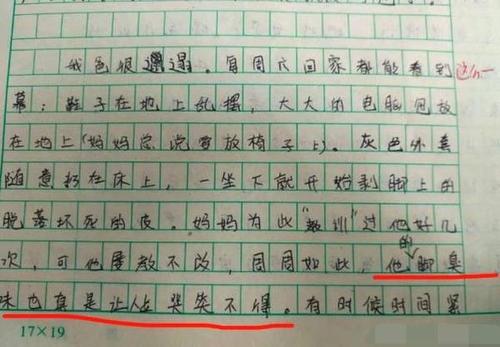 我爸很邋遢。每周六回家都能看到这一
幕：鞋子在地上乱摆，大大的电脑包放
在地上（妈妈总说要放椅子上）。灰色外套
随意扔在床上，一坐下就开始剥脚上的
脱落坏死的皮。妈妈为此“教训”过他好几
次，可他屡教不改，周周如此，他的脚臭
味也真是让人哭笑不得。有时候时间紧
17×19